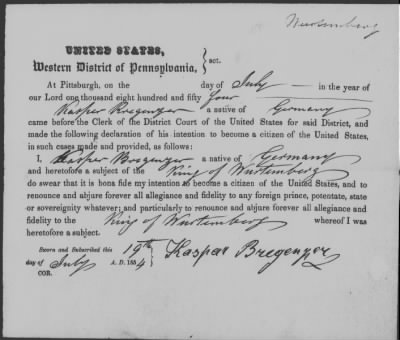 Wurtemberg
UNITED STATES,
Western District of Pennsylvania, } sct.
At Pittsburgh, on the day of July in the year of
our Lord one thousand eight hundred and fifty four
Kasper Bregenzer a native of Germany
came before the Clerk of the District Court of the United States for said District, and
made the following declaration of his intention to become a citizen of the United States,
in such cases made and provided, as follows:
I, Kasper Bregenzer a native of Germany
and heretofore a subject of the King of Wurtemberg
do swear that it is bona fide my intention to become a citizen of the United States, and to
renounce and abjure forever all allegiance and fidelity to any foreign prince, potentate, state
or sovereignty whatever; and particularly to renounce and abjure forever all allegiance and
fidelity to the King of Wurtemberg whereof I was
heretofore a subject.
Sworn and Subscribed this 19th
day of July A. D. 1854
COR.
Kaspar Bregenzer